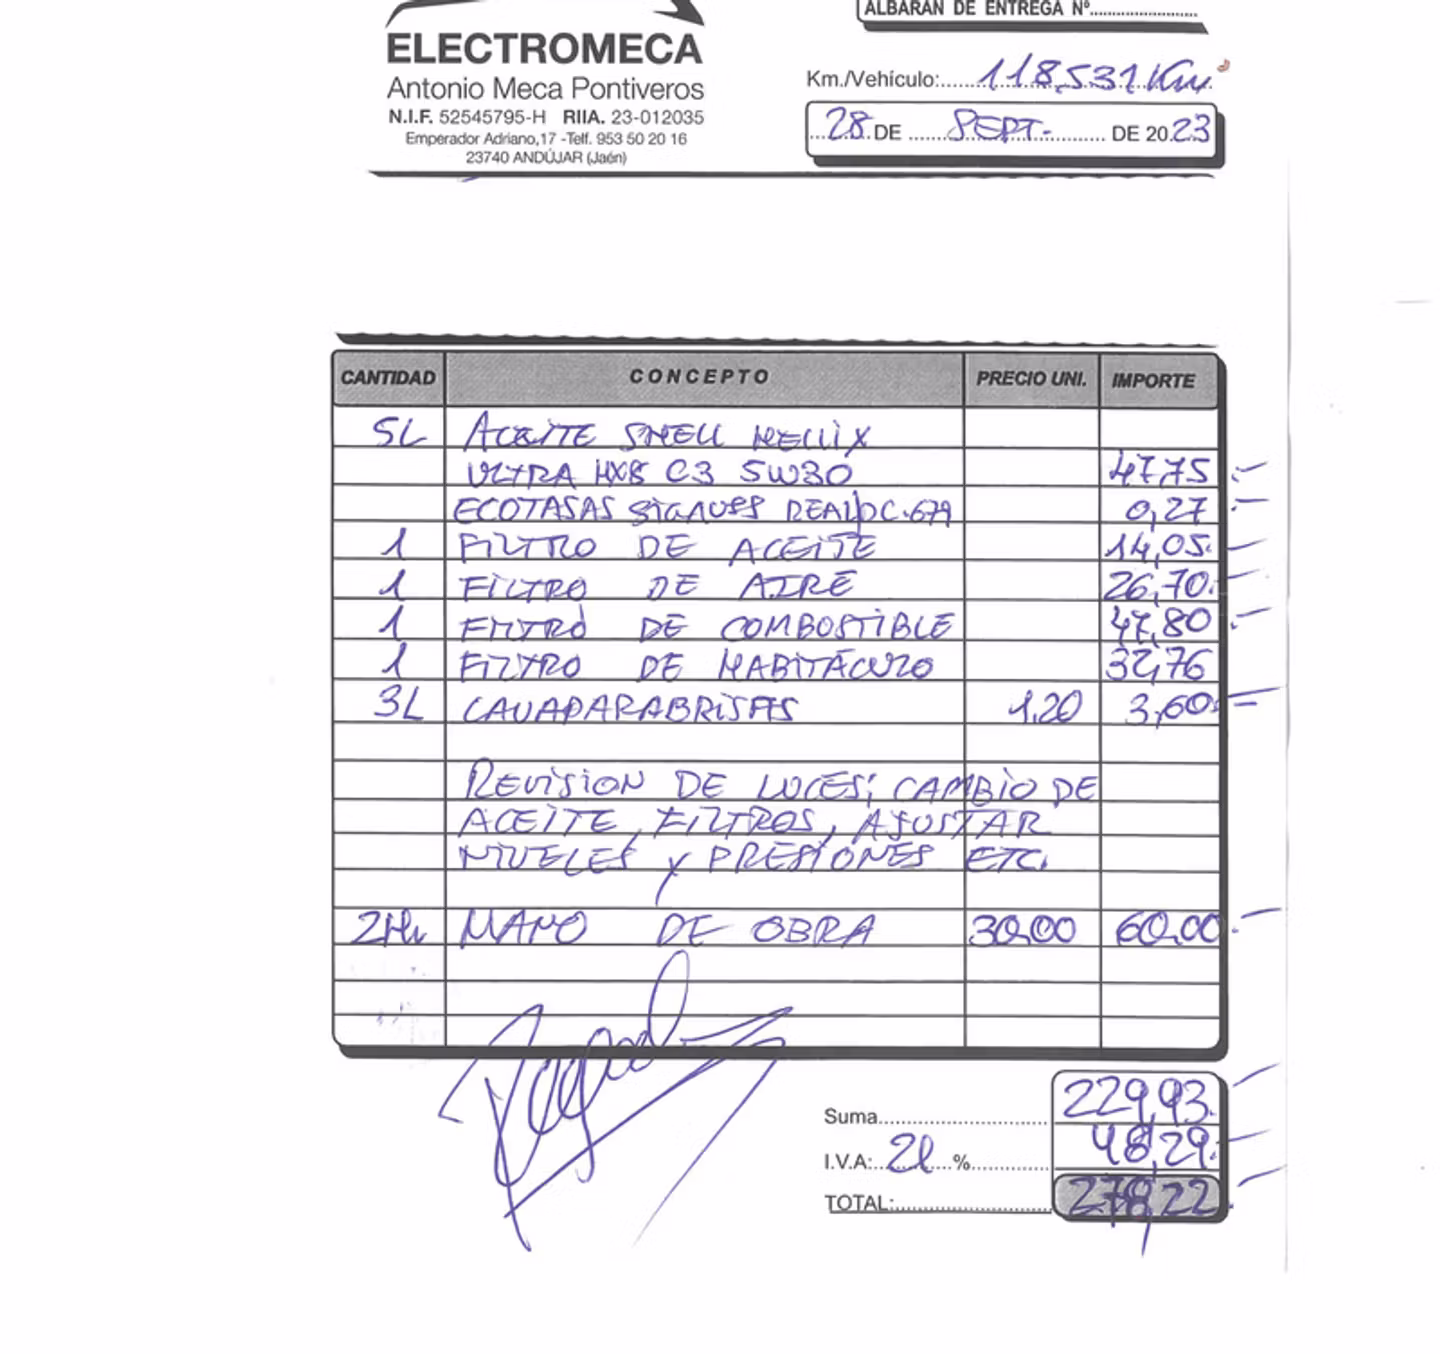 ALBARAN DE ENTREGA Nº
ELECTROMECA
Antonio Meca Pontiveros
N.I.F. 52545795-H RIIA. 23-012035
Emperador Adriano,17 -Telf. 953 50 20 16
23740 ANDÚJAR (Jaén)
Km./Vehículo: 118,531 Km
28 DE SEPT. DE 2023
CANTIDAD CONCEPTO PRECIO UNI. IMPORTE
5L ACEITE SHELL HELLIX
ULTRA HX8 C3 5W30 47,75
ECOTASAS SIGAUSS REAL DC.679 0,27
1 FILTRO DE ACEITE 14,05
1 FILTRO DE AIRE 26,70
1 FILTRO DE COMBOSTIBLE 47,80
1 FILTRO DE HABITÁCULO 32,76
3L LAVAPARABRISAS 1,20 3,60
REVISION DE LUCES; CAMBIO DE
ACEITE, FILTROS, AJUSTAR
NIVELES y PRESIONES ETC.
2H MANO DE OBRA 30,00 60,00
Pagado
Suma 229,93
I.V.A: 21 % 48,29
TOTAL: 278,22